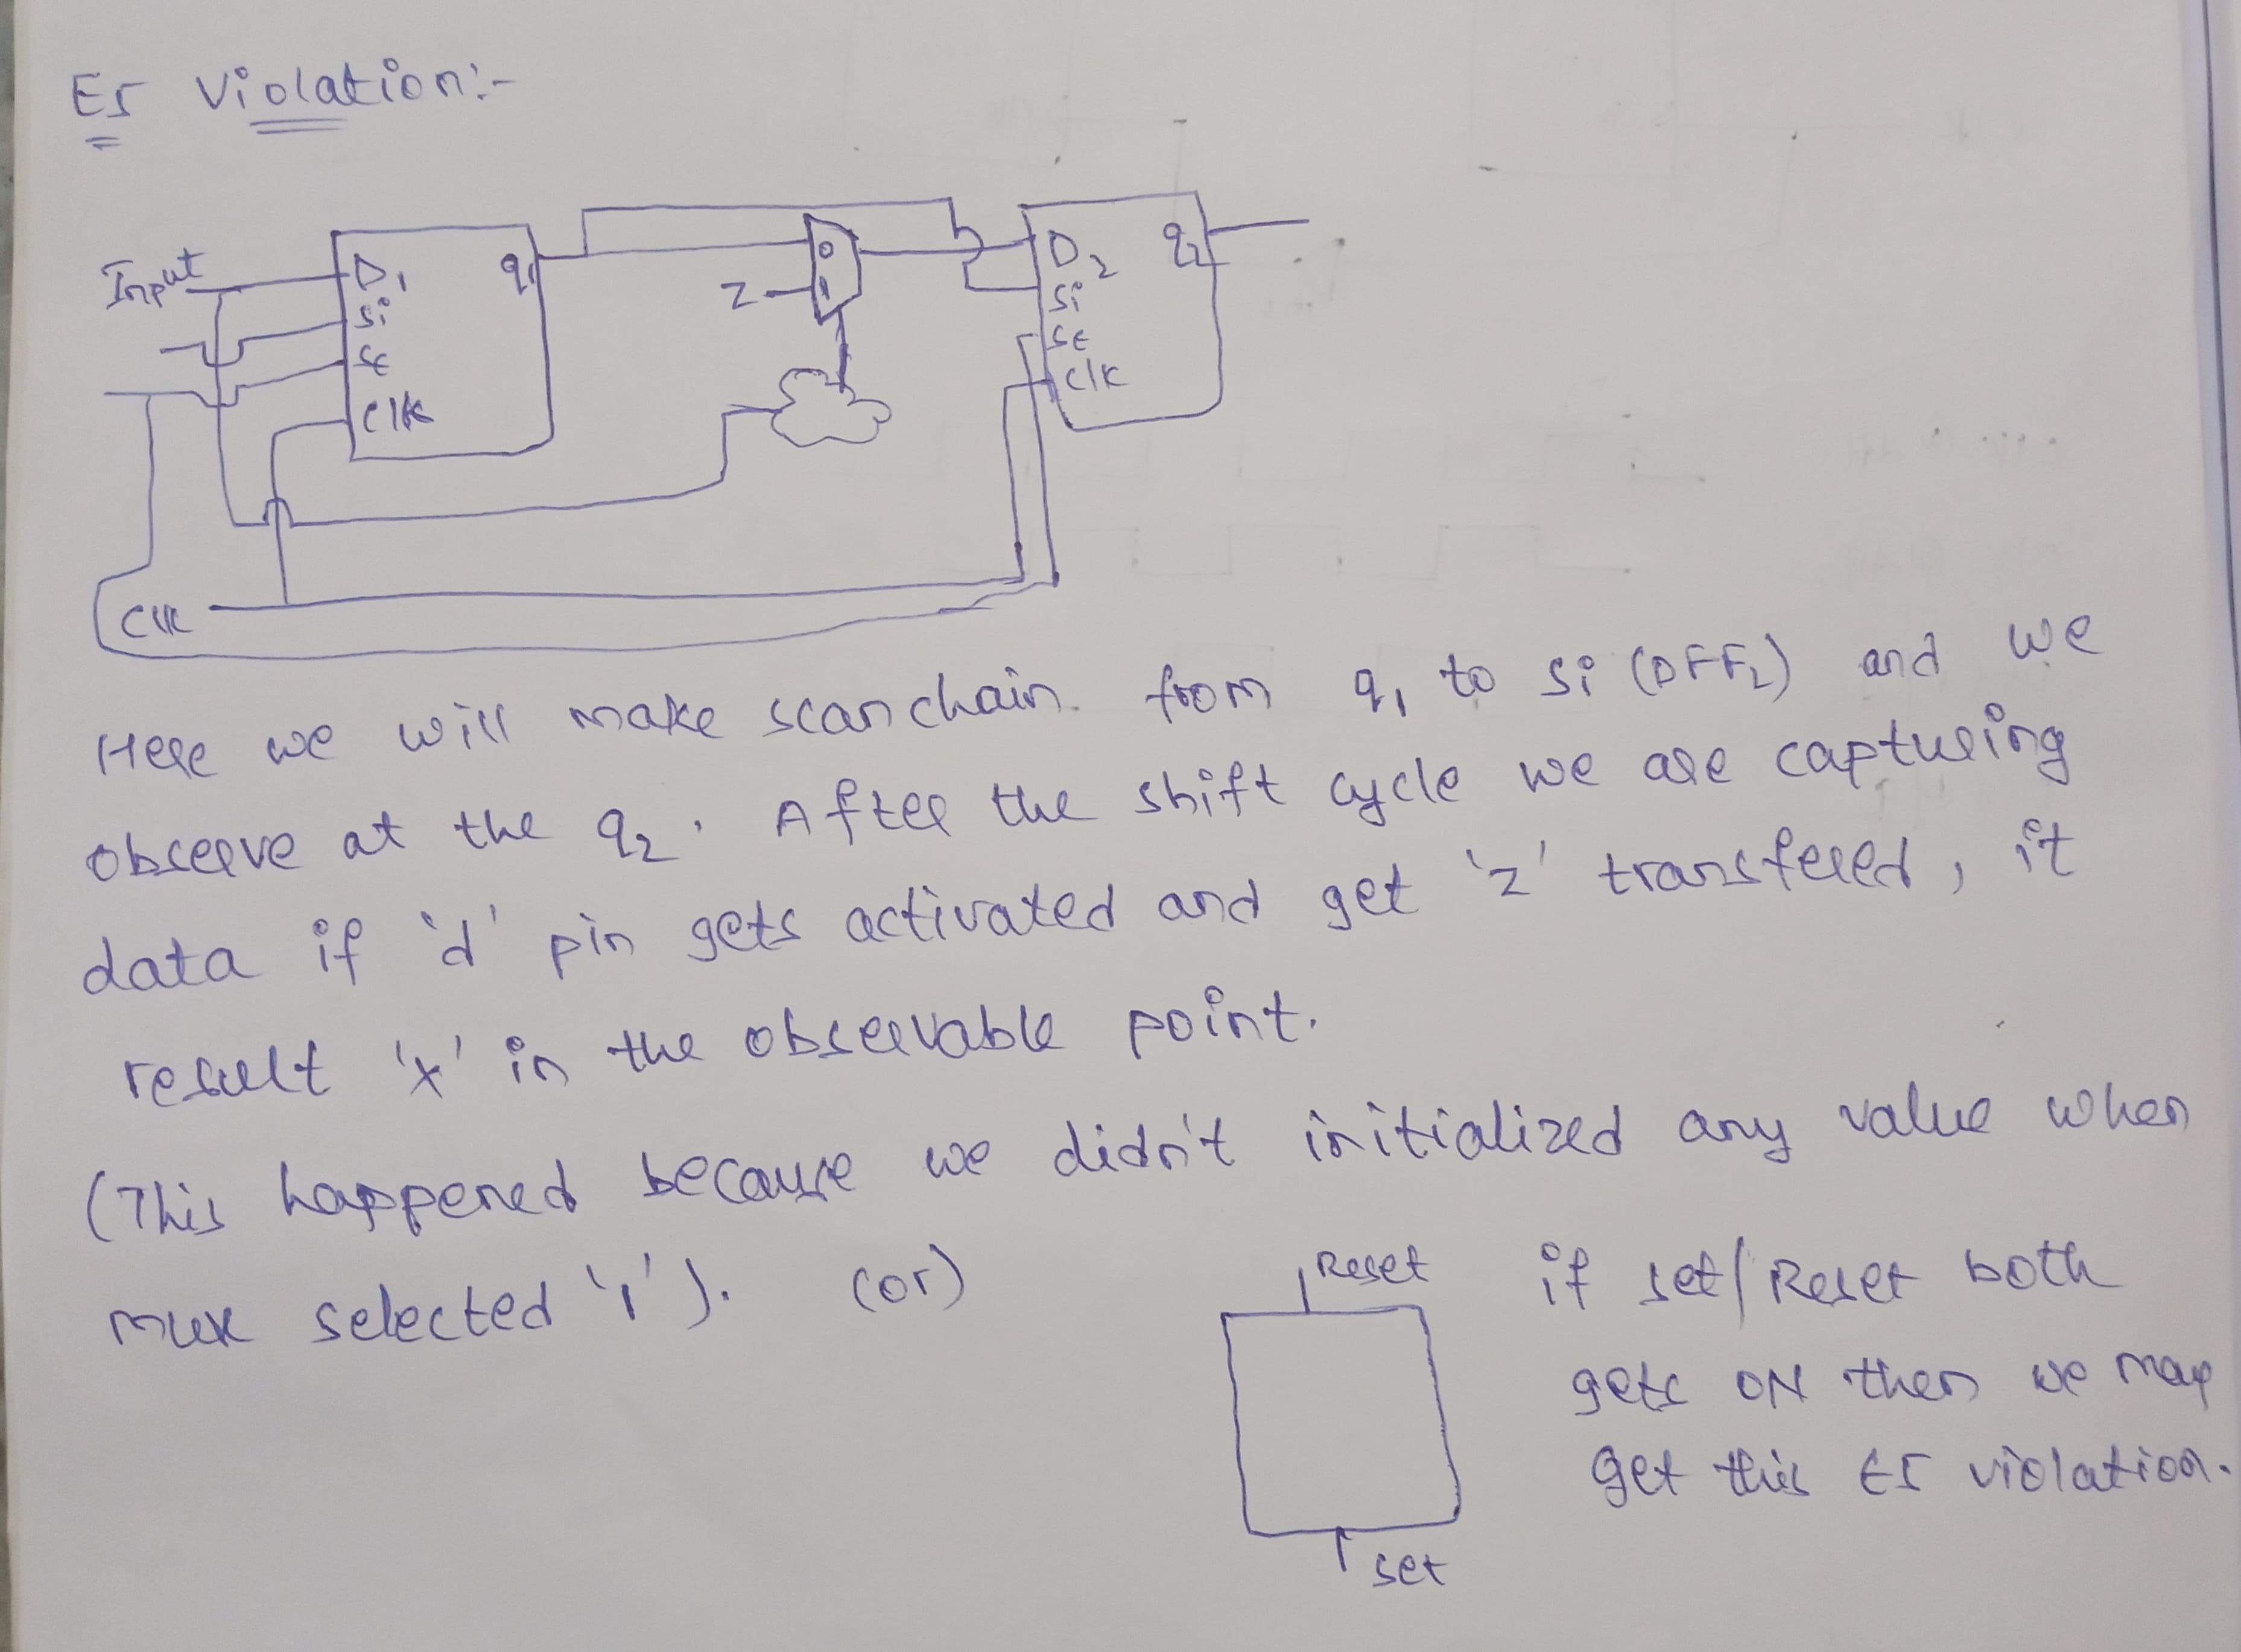 E5 Violation:-
Input
D1
q1
Si
SE
Clk
0
Z
1
D2
q2
Si
SE
Clk
Clk
Here we will make scan chain. from q1 to Si (DFF2) and we
observe at the q2. After the shift cycle we are capturing
data if 'd' pin gets activated and get 'z' transfered, it
result 'x' in the observable point.
(This happened because we didn't initialized any value when
mux selected '1'). (or)
Reset
if set/Reset both
gets ON then we may
get this E5 violation.
set